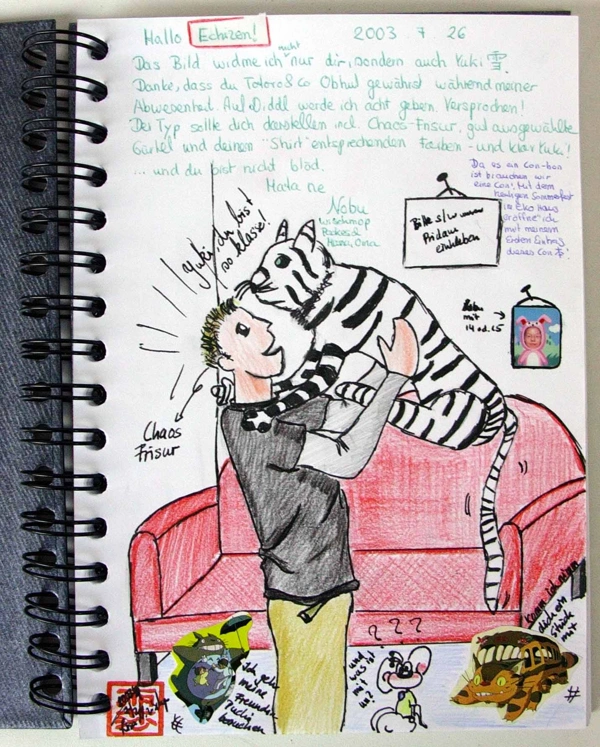 Hallo Echizen! 2003. 7. 26
Das Bild widme ich nicht nur dir, sondern auch Yuki 雪.
Danke, dass du Totoro & Co Obhut gewährst während meiner
Abwesenheit. Auf Diddl werde ich acht geben. Versprochen!
Der Typ sollte dich darstellen incl. Chaos-Frisur, gut ausgewählte
Gürtel und deinen "Shirt" entsprechenden Farben - und klar Yuki!
... und du bist nicht blöd.
Mata ne
Nobu
Da es an Con-bon
ist brauchen wir
eine Con!, Mit dem
heutigen Sommerfest
im Eko Haus
eröffne ich
mit meinem
Ersten Eintrag
dieses Con
Yuki, du bist
so klasse!
Bitte s/w
einkleben
mit
14 od. 15
Chaos
Frisur
Komm, ich nehm
dich ein
Stück
mit
Ich geh
meine
Freundin
besuchen
und
was ist
mit
???